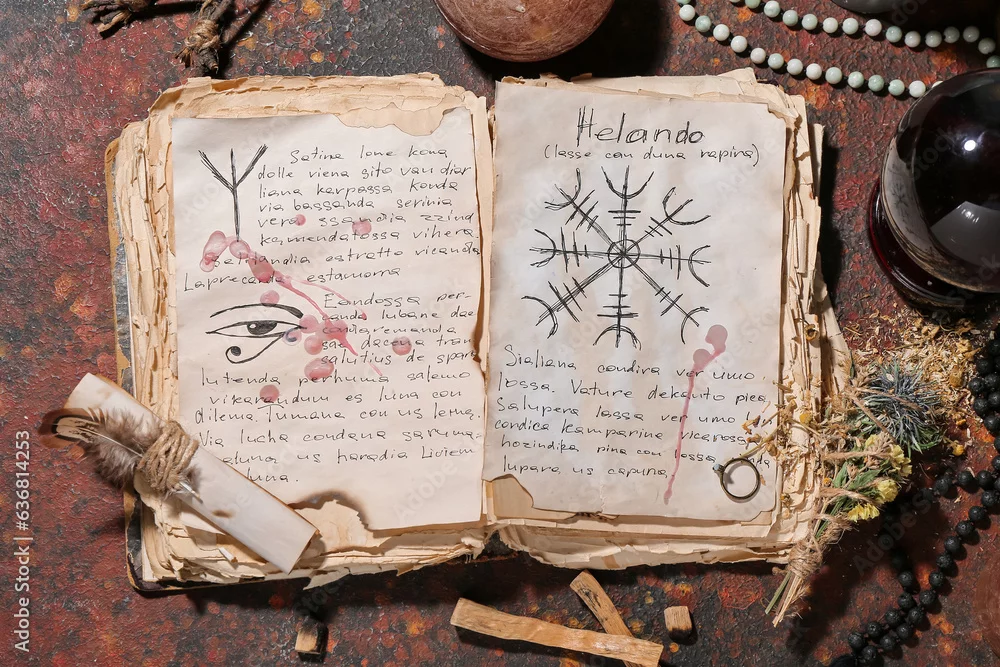 Satina lone kona
dolle viena sito van diar
liana karpassa konda
via bassanda serinia
vera ssandia zzind
kamendatossa vihera
serlandia estratto vicanda
Laprecando estamorra
Eandossa per-
canda lubane dae
condaremanda
sae dacena tran
salutius de spar
lutenda perhuma salemo
vikarandum es luna con
dilema Tumana con us lema.
Via lucha condana saruma-
aluna us haradia Liviem
luna.
Helando
(lasse con duna rapina)
Sialiana condira ver umo
lossa. Vature dekanto pica
Salupera lassa ver umo
condica kamparina vicarossa
hozindika pina con lossa
lupara us capuna
Adobe Stock | #636814253